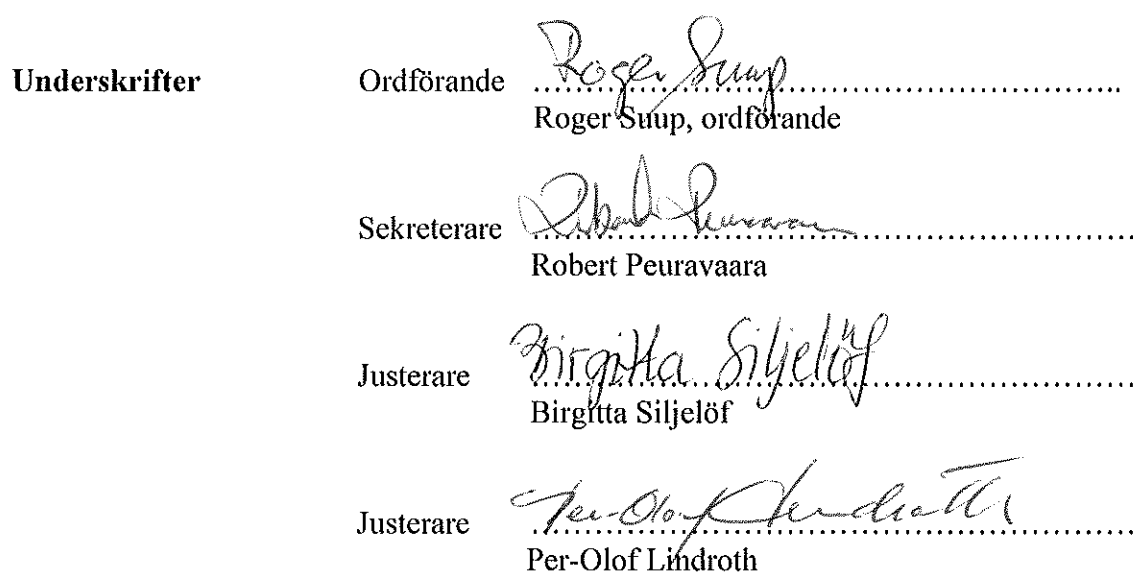 Underskrifter Ordförande Roger Suup
Roger Suup, ordförande
Sekreterare Robert Peuravaara
Robert Peuravaara
Justerare Birgitta Siljelöf
Birgitta Siljelöf
Justerare Per-Olof Lindroth
Per-Olof Lindroth